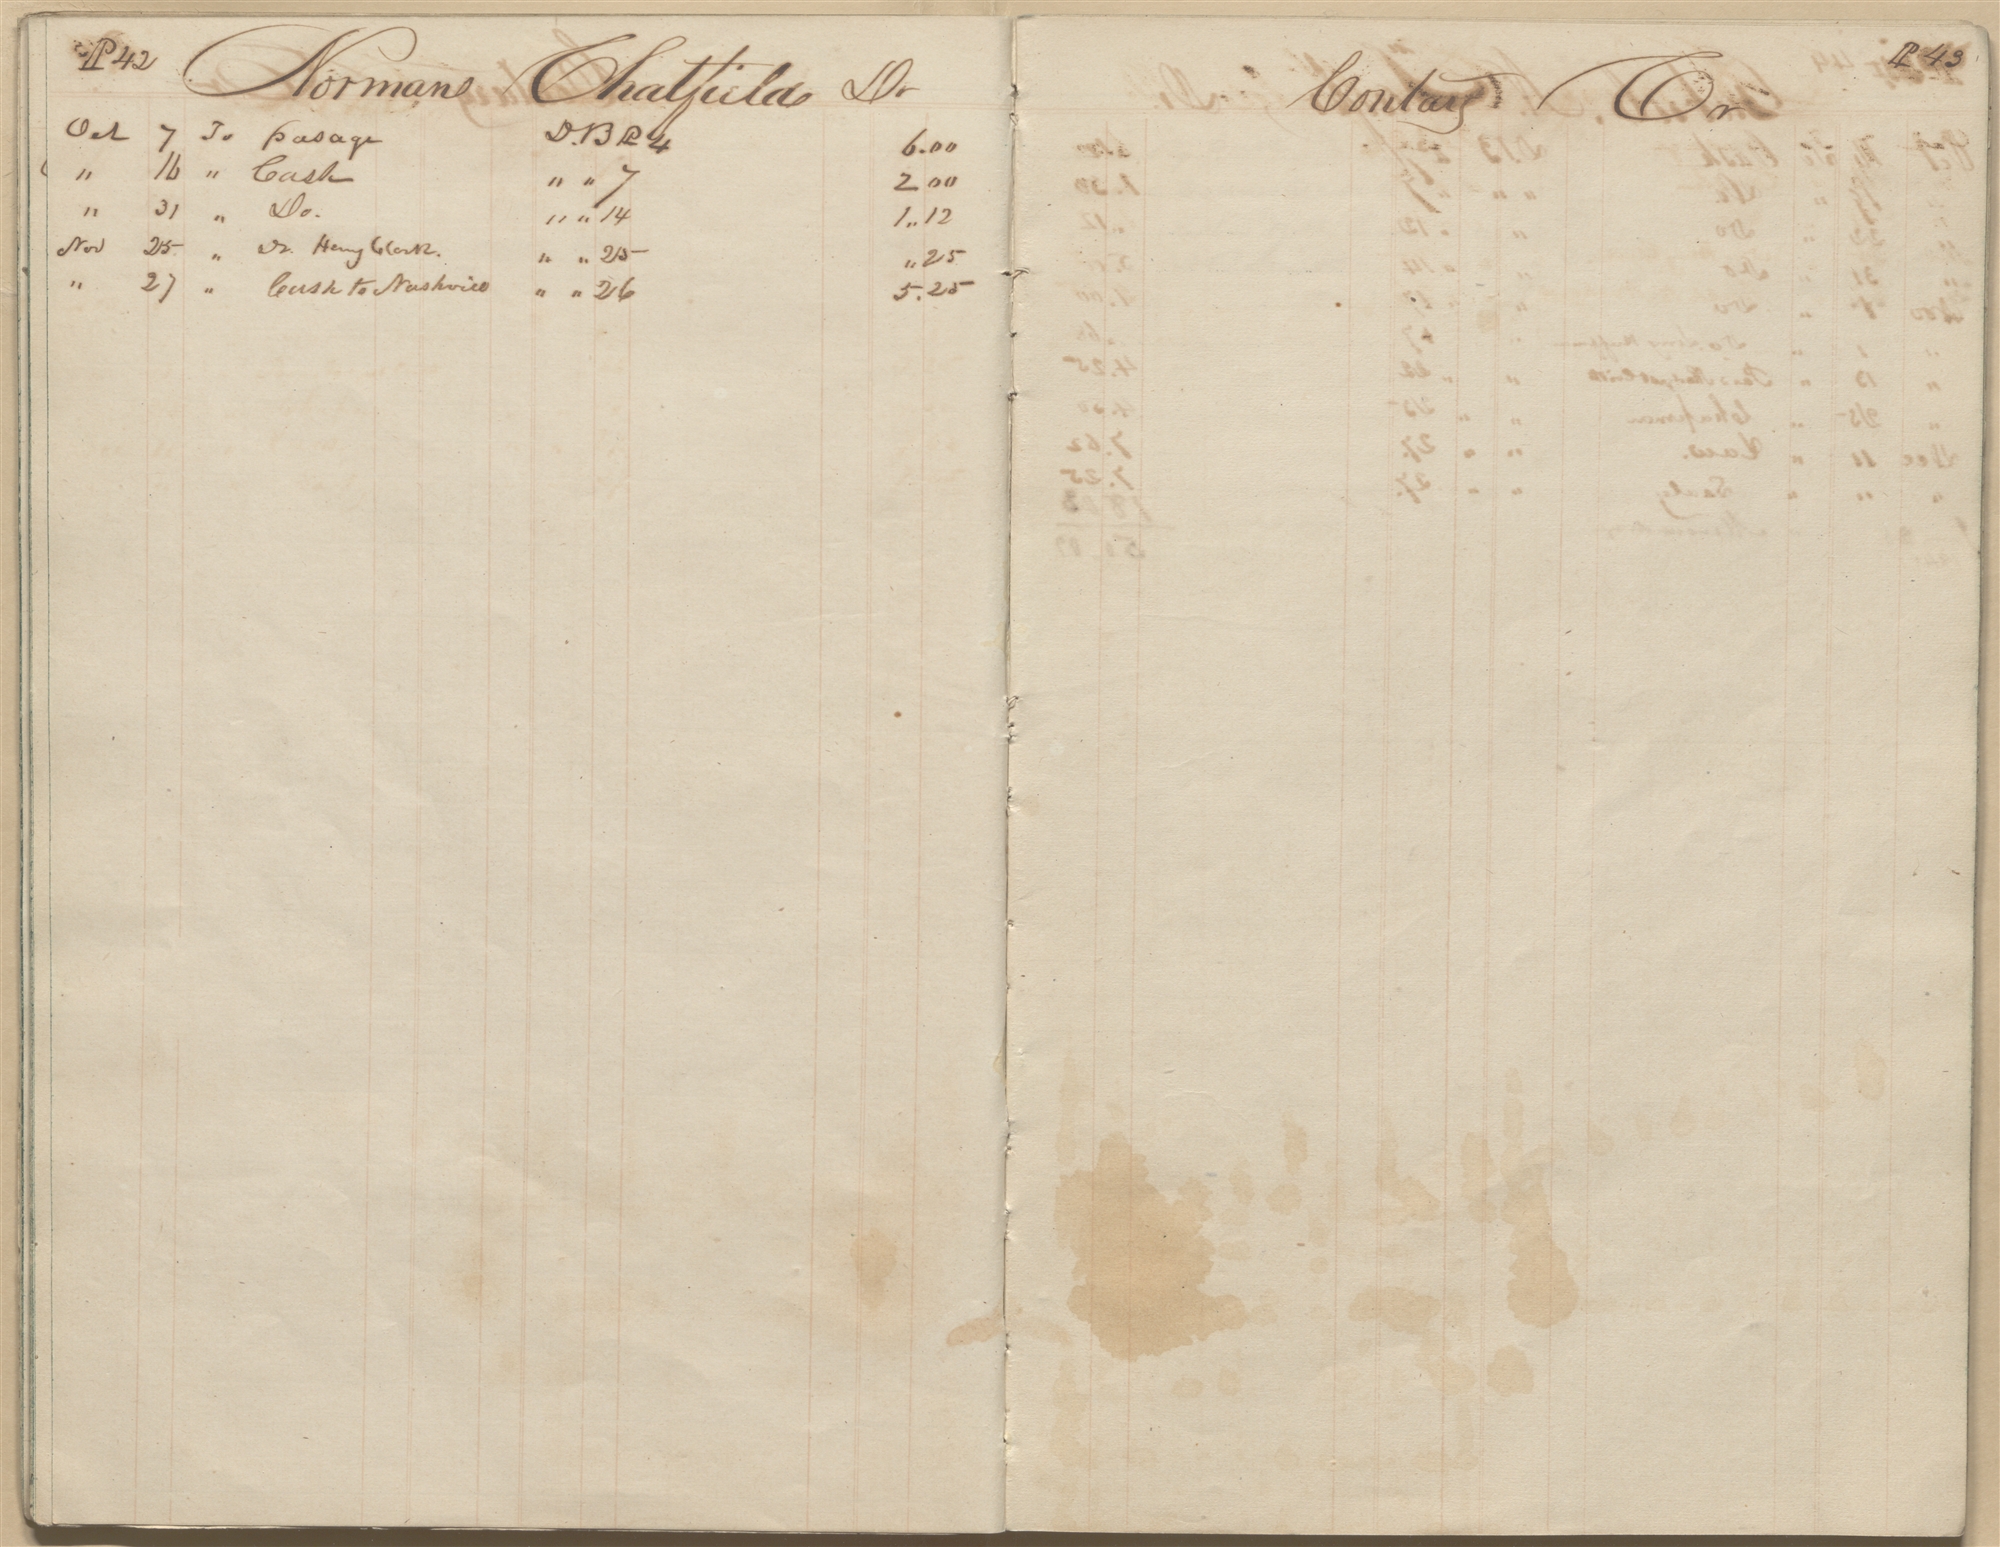 P 42 Norman Chatfield Dr
Oct 7 To pasage D.B P 4 6.00
" 16 " Cash " " 7 2 00
" 31 " Do. " " 14 1,,12
Nov 25 " Dr. Henry Clark. " " 25 ,,25
" 27 " Cash to Nashvill " " 26 5.25
P 43
Contary Cr